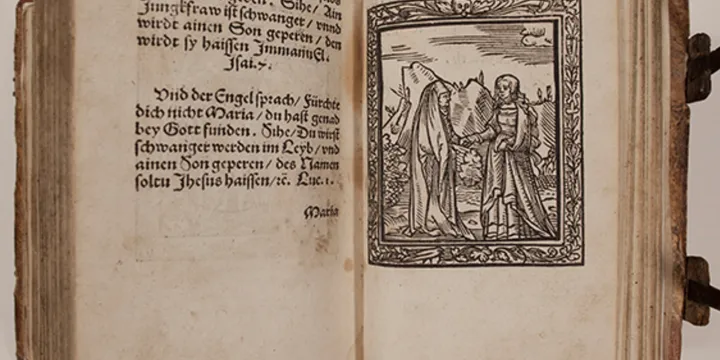 Jungkfraw ist schwanger / vnnd
wirdt ainen Son geperen / den
wirdt sy haissen Jmmanuel.
Jsai.7.
Vnd der Engel sprach / Fürchte
dich nicht Maria / du hast genad
bey Gott funden . Sihe / Du wirst
schwanger werden im Leyb / vnd
ainen Son geperen / des Namen
soltu Jhesus haissen / ꝛc. Luc. 1.
Maria